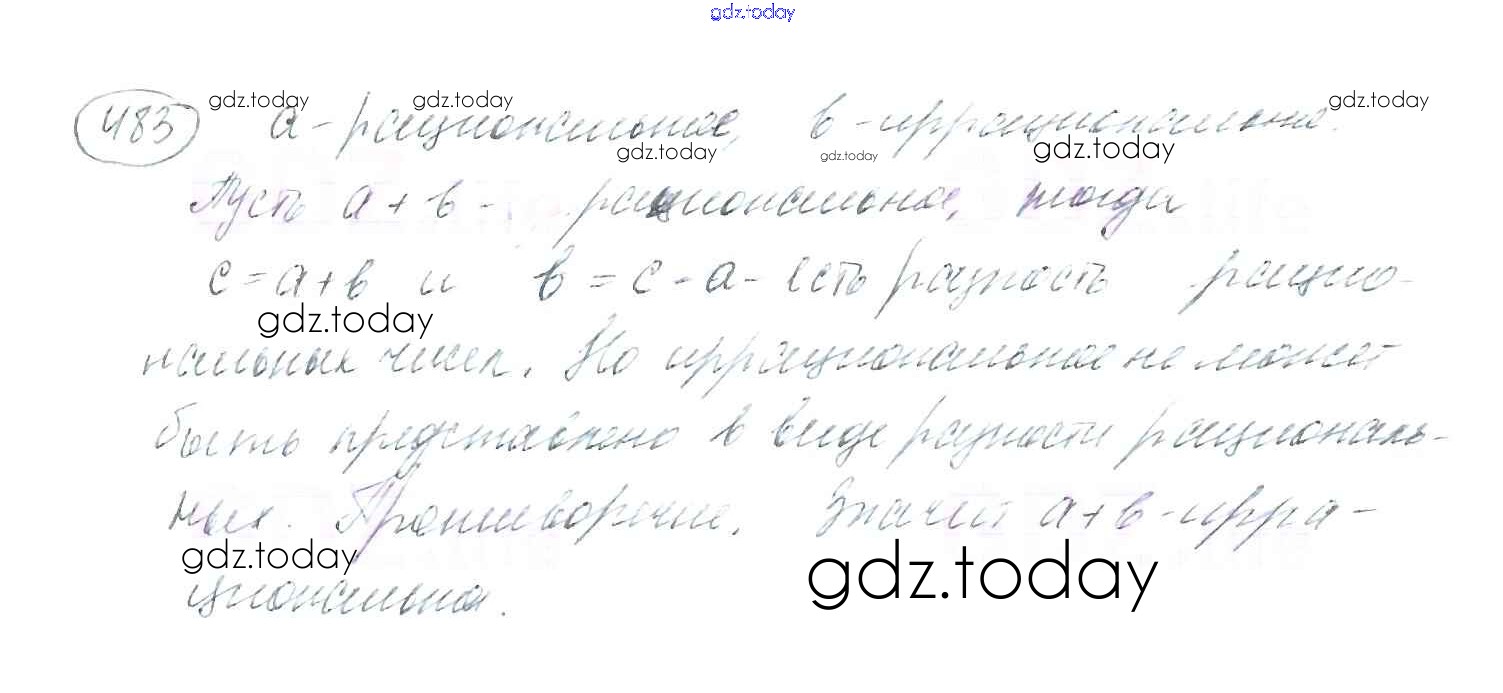 gdz.today
483 gdz.today gdz.today gdz.today
а - рациональное, в - иррационально.
gdz.today gdz.today gdz.today
Пусть а + в - рациональна, тогда
с = а + в и в = с - а - есть разность рацио-
gdz.today
нальных чисел. Но иррациональное не может
быть представлено в виде разности рациональ-
ных. Противоречие. Значит а + в - ирра-
gdz.today gdz.today
циональна.